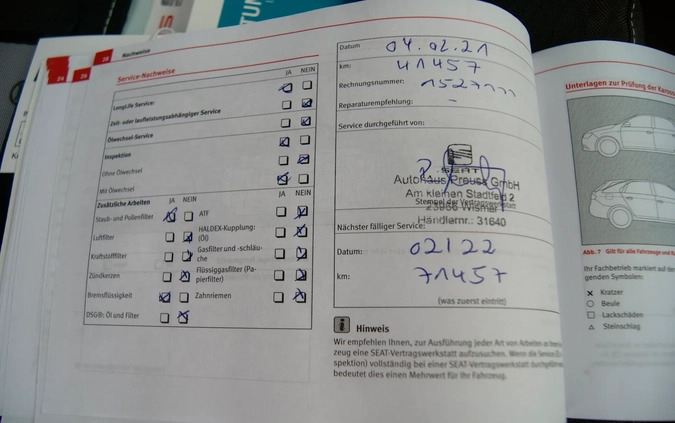 28
Nachweise
24
26
Service-Nachweise
JA NEIN
LongLife Service:
Zeit- oder laufleistungsabhängiger Service
Ölwechsel-Service
Inspektion
Ohne Ölwechsel
Mit Ölwechsel
Zusätzliche Arbeiten JA NEIN JA NEIN
Staub- und Pollenfilter ATF
Luftfilter HALDEX-Kupplung:
(Öl)
Kraftstofffilter Gasfilter und -schläu-
che
Zündkerzen Flüssiggasfilter (Pa-
pierfilter)
Bremsflüssigkeit Zahnriemen
DSG®: Öl und Filter
Datum 04.02.21
km: 41457
Rechnungsnummer:
Reparaturempfehlung: -
Service durchgeführt von:
SEAT
Autohaus Preuss GmbH
Am kleinen Stadtfeld 2
Stempel der Vertragswerkstatt
23966 Wismar
Händlernr.: 31640
Nächster fälliger Service:
Datum: 02/22
km: 71457
(was zuerst eintritt)
i Hinweis
Wir empfehlen Ihnen, zur Ausführung jeder Art von Arbeiten an Ihrem
zeug eine SEAT-Vertragswerkstatt aufzusuchen. Wenn die Service
spektion) vollständig bei einer SEAT-Vertragswerkstatt
bedeutet dies einen Mehrwert für Ihr Fahrzeug.
Unterlagen zur Prüfung der Kaross
Abb. 7 Gilt für alle Fahrzeuge
Ihr Fachbetrieb markiert auf de
genden Symbolen:
x Kratzer
Beule
Lackschäden
Steinschlag